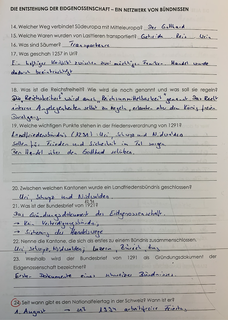 DIE ENTSTEHUNG DER EIDGENOSSENSCHAFT – EIN NETZWERK VON BÜNDNISSEN
14. Welcher Weg verbindet Südeuropa mit Mitteleuropa? Der Gotthard
15. Welche Waren wurden von Lasttieren transportiert? Getreide Reis Wein
16. Was sind Säumer? Transporteure
17. Was geschah 1257 in Uri?
Ein heftiger zwischen zwei mächtige Familien. Handel wurde
dadurch beeinträchtigt
18. Was ist die Reichsfreiheit? Wie wird sie noch genannt und was soll sie regeln?
Die Reichsfreiheit wird auch Reichsunmittelbarkeit genannt. Das Recht
Angelegenheiten selbst zu regeln,
19. Welche wichtigen Punkte stehen in der Friedensverordnung von 1291?
Uri, Schwyz und Nidwalden
Sollen für Frieden und Sicherheit im Tal sorgen
Den Handel über den Gotthard
20. Zwischen welchen Kantonen wurde ein Landfriedensbündnis geschlossen?
Uri, Schwyz und Nidwalden
21. Was ist der Bundesbrief von 1291?
Das Gründungsdokument der Eidgenossenschaft
→ Kein Verteidigungsbündnis
→ Sicherung der Handelswege
22. Nenne die Kantone, die sich als erstes zu einem Bündnis zusammenschlossen.
Uri, Schwyz, Nidwalden, Luzern, Zürich, Zug
23. Weshalb wird der Bundesbrief von 1291 als Gründungsdokument der
Eidgenossenschaft bezeichnet?
Erste Dokumente eines Bündnisses.
24. Seit wann gibt es den Nationalfeiertag in der Schweiz? Wann ist er?
1. August → 1994 arbeitsfreier Feiertag